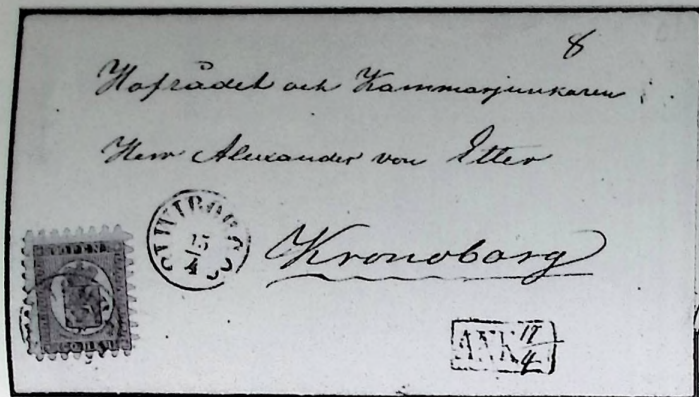 8
Hofrådet och Kammarjunkaren
Herr Alexander von Etter
15
4
Kronoborg
ANK 17/4